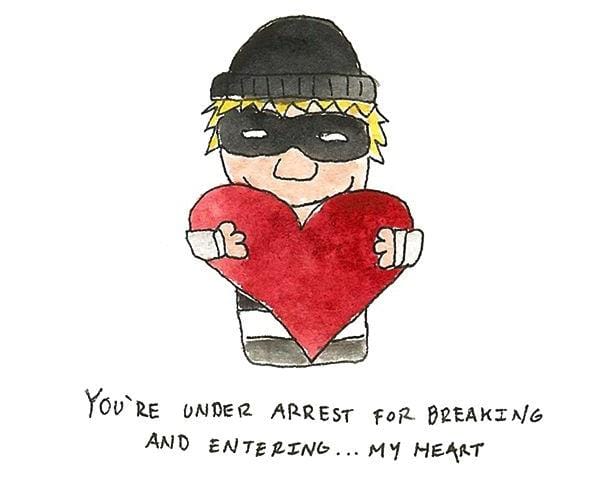 YOU'RE UNDER ARREST FOR BREAKING
AND ENTERING... MY HEART